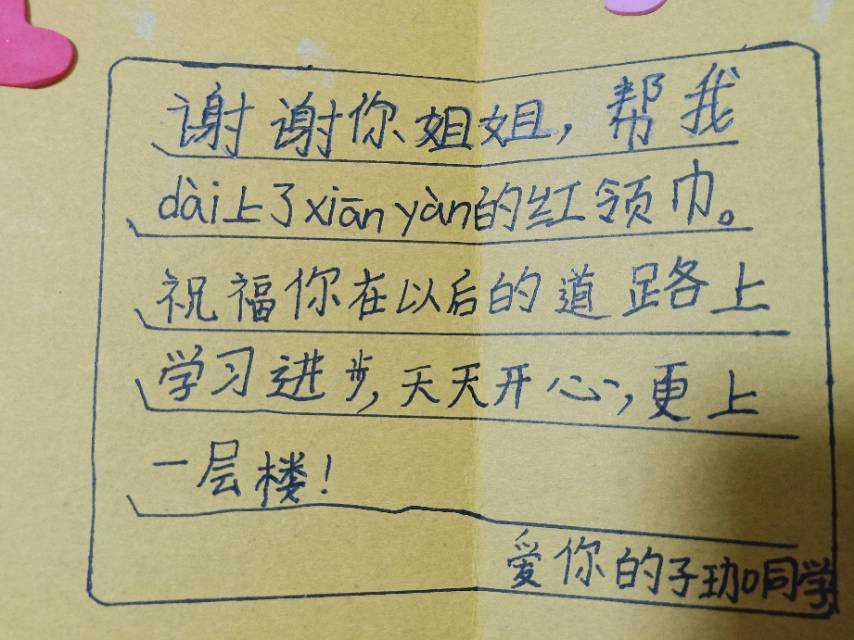 谢谢你姐姐，帮我
dài上了xiān yàn的红领巾。
祝福你在以后的道路上
学习进步，天天开心，更上
一层楼！
爱你的子珈同学